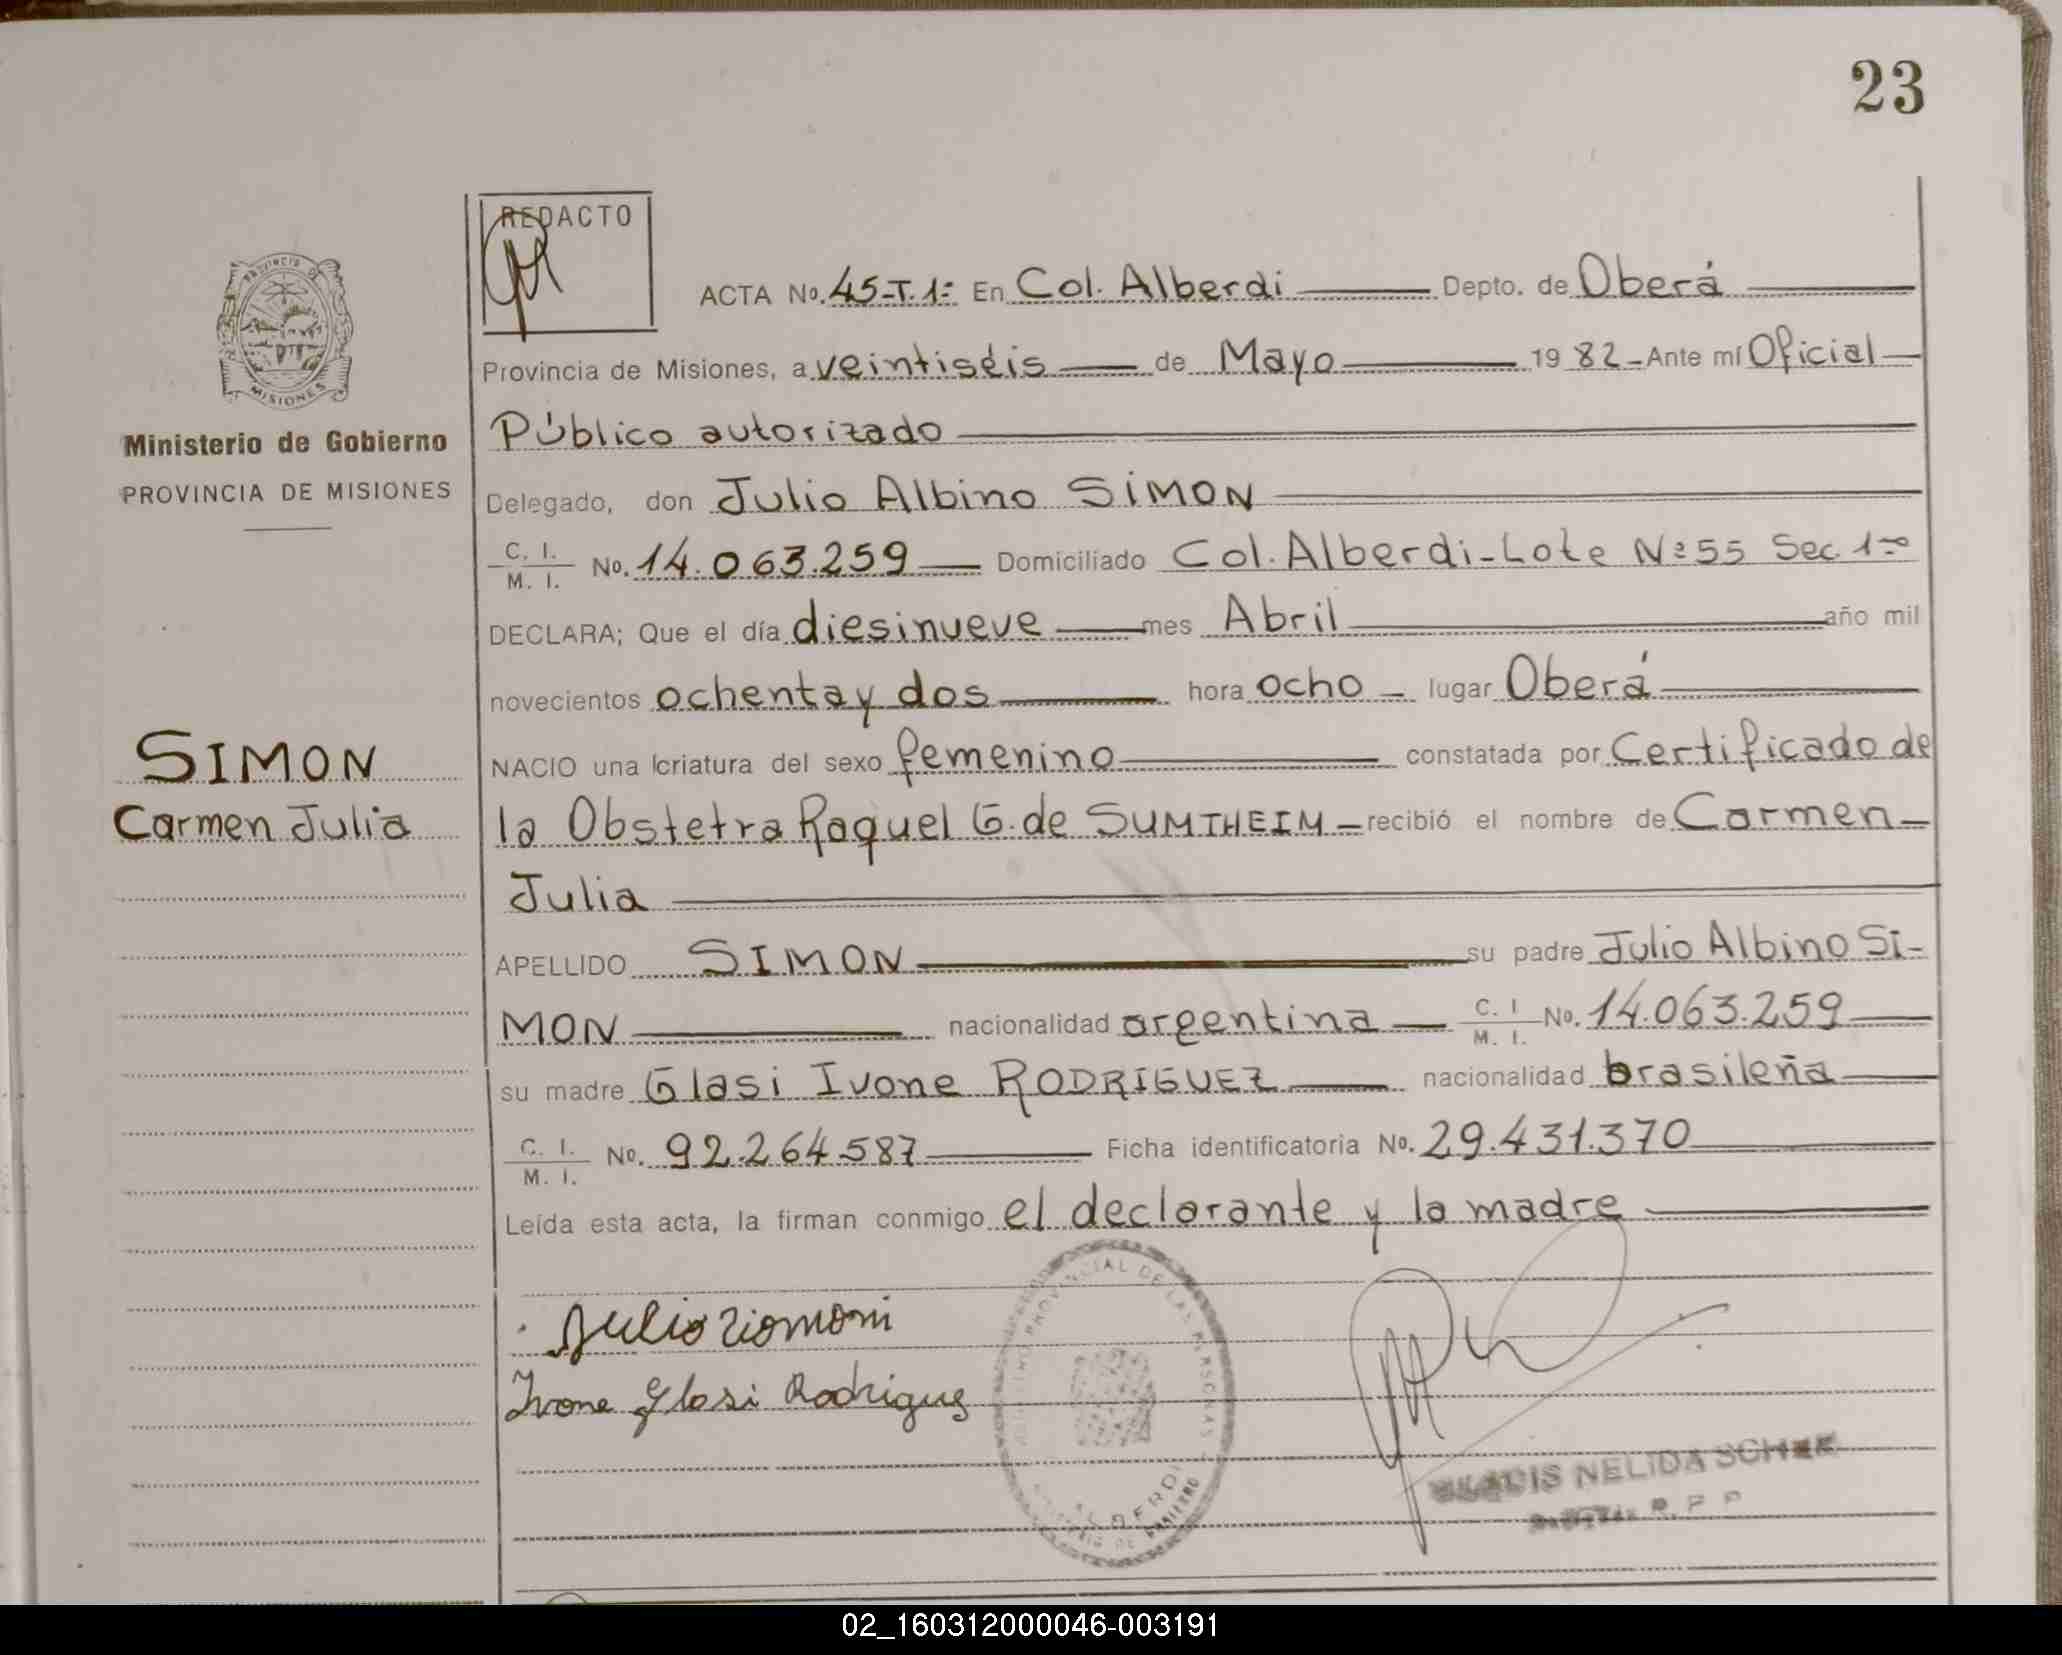 23
REDACTO
ACTA No. 45-T.1º En Col. Alberdi Depto. de Oberá
Provincia de Misiones, a veintiséis de Mayo 1982 - Ante mí Oficial
Público autorizado
Ministerio de Gobierno
PROVINCIA DE MISIONES
Delegado, don Julio Albino SIMON
C. I.
M. I. No. 14.063.259 Domiciliado Col. Alberdi - Lote Nº 55 Sec. 1º
DECLARA; Que el día diesinueve mes Abril año mil
novecientos ochenta y dos hora ocho lugar Oberá
SIMON
Carmen Julia
NACIO una criatura del sexo femenino constatada por Certificado de
la Obstetra Raquel G. de SUMTHEIM recibió el nombre de Carmen
Julia
APELLIDO SIMON su padre Julio Albino SI-
MON nacionalidad argentina C. I.
M. I. No. 14.063.259
su madre Glasi Ivone RODRIGUEZ nacionalidad brasileña
C. I.
M. I. No. 92.264.587 Ficha identificatoria No. 29.431.370
Leída esta acta, la firman conmigo el declarante y la madre
Julio
Ivone Glasi Rodrigues
PROVINCIAL DE LAS PERSONAS
ALBERDI
NELIDA
R. P. P.
02_160312000046-003191